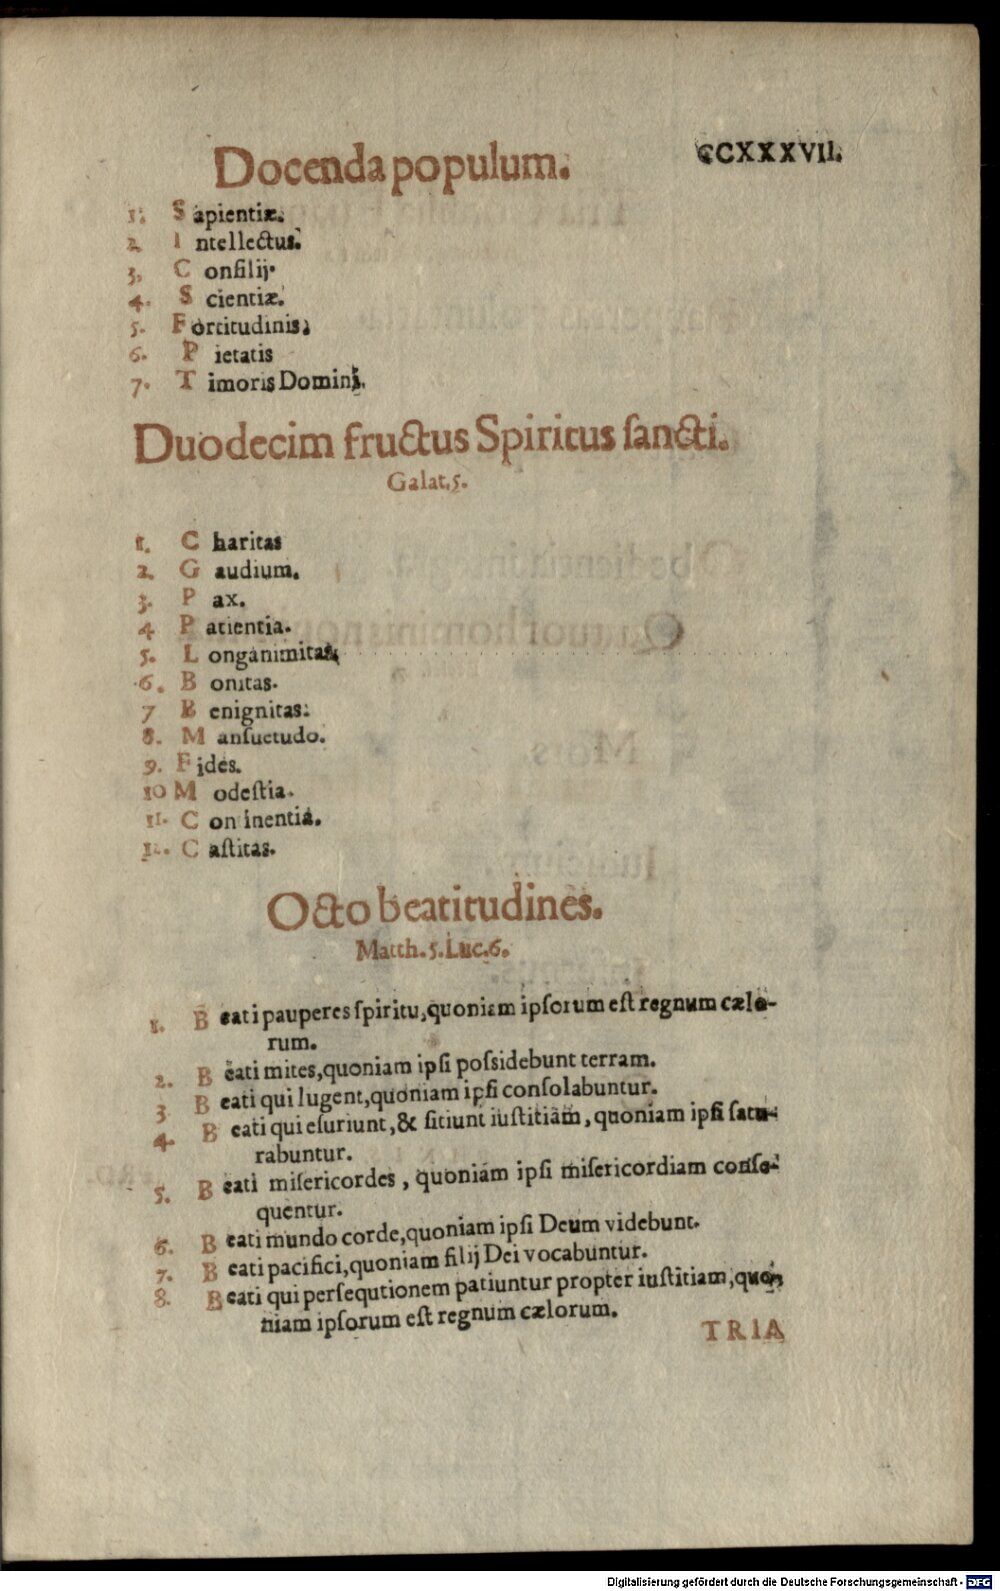 Docenda populum.
CCXXXVII.
1. Sapientiæ.
2. Intellectus.
3. Conſilij.
4. Scientiæ.
5. Fortitudinis.
6. Pietatis
7. Timoris Domini.
Duodecim fructus Spiritus ſancti.
Galat.5.
1. Charitas
2. Gaudium.
3. Pax.
4 Patientia.
5. Longanimitas.
6. Bonitas.
7 Benignitas.
8. Manſuetudo.
9. Fides.
10 Modeſtia.
11. Con inentia.
12. Caſtitas.
Octo beatitudines.
Matth.5.Luc.6.
1. Beati pauperes ſpiritu,quoniam ipſorum eſt regnum cælo-
rum.
2. Beati mites,quoniam ipſi poſsidebunt terram.
3 Beati qui lugent,quoniam ipſi conſolabuntur.
4. Beati qui eſuriunt,& ſitiunt iuſtitiam, quoniam ipſi ſatu-
rabuntur.
5. Beati miſericordes, quoniam ipſi miſericordiam conſe-
quentur.
6. Beati mundo corde,quoniam ipſi Deum videbunt.
7. Beati pacifici,quoniam filij Dei vocabuntur.
8. Beati qui perſequtionem patiuntur propter iuſtitiam,quo-
niam ipſorum eſt regnum cælorum.
TRIA
Digitalisierung gefördert durch die Deutsche Forschungsgemeinschaft - DFG